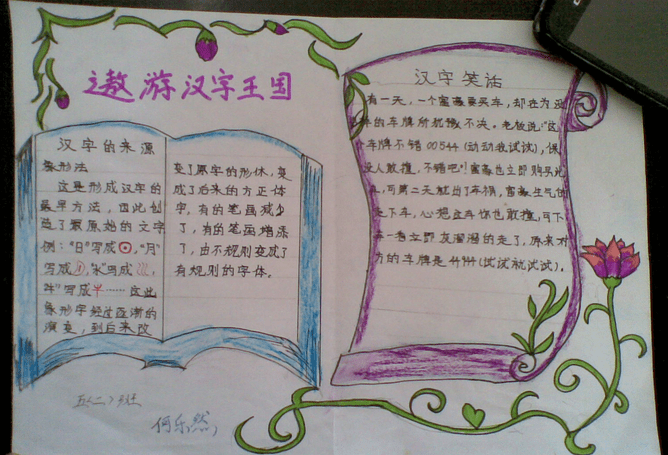 遨游汉字王国
汉字的来源
象形法
这是形成汉字的
最早方法，因此创
造了最原始的文字
例："日"写成⊙，"月"
写成，"水"写成，
"牛"写成……这些
象形字经过逐渐的
演变，到后来改
变了原字的形体，变
成了后来的方正体
字，有的笔画减少
了，有的笔画增添
了，由不规则变成了
有规则的字体。
五（二）班
何乐然
汉字笑话
有一天，一个富豪要买车，却在为
车的车牌所犹豫不决。老板说："这
车牌不错00544（动动我试试），保
没人敢撞，不错吧！"富豪也立即购买
，可第二天就出了车祸，富豪生气
走下车，心想这车你也敢撞，可下
一看立即灰溜溜的走了，原来对
方的车牌是44944（试试就试试）。